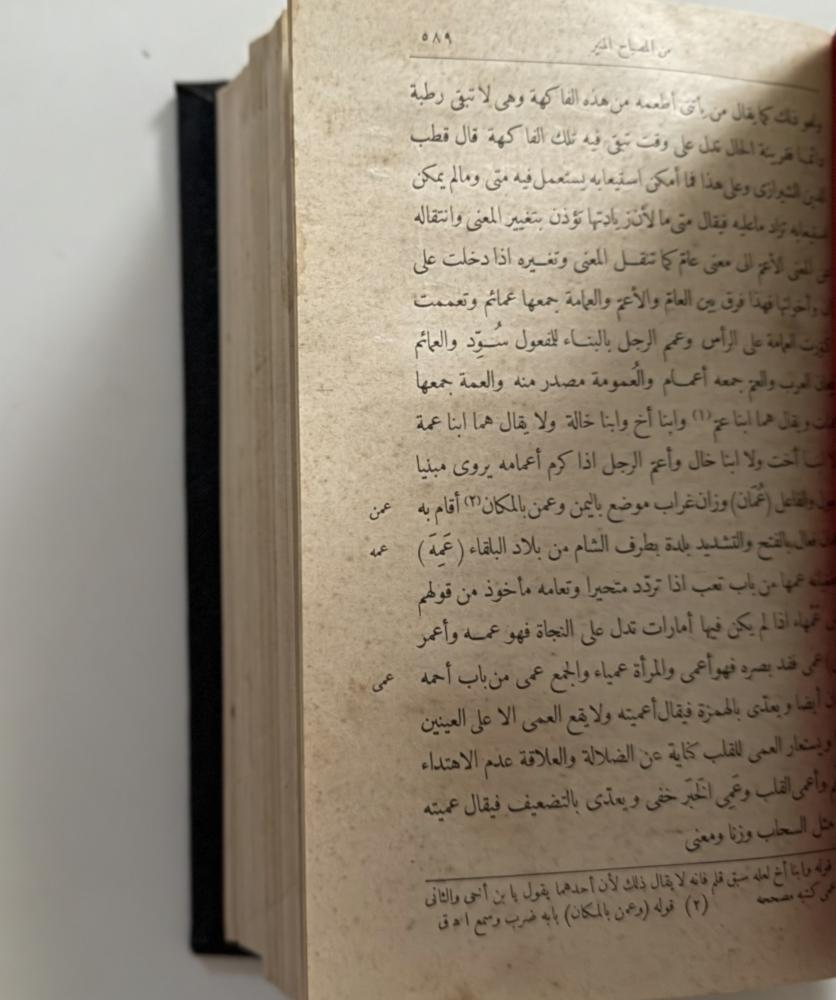 من المصباح المنير ٥٨٩
ونحو ذلك كما يقال من يأتنى أطعمه من هذه الفاكهة وهى لا تبقى رطبة
دائما فقرينة الحال تدل على وقت تبقى فيه تلك الفاكهة قال قطب
الدين الشيرازى وعلى هذا فما أمكن استيعابه يستعمل فيه متى ومالم يمكن
استيعابه تزاد ما عليه فيقال متى ما لأن زيادتها تؤذن بتغيير المعنى وانتقاله
المعنى الأعم الى معنى عام كما تنقل المعنى وتغيره اذا دخلت على
وأخواتها فهذا فرق بين العام والأعم والعمامة جمعها عمائم وتعممت
العمامة على الرأس وعمم الرجل بالبناء للمفعول سُوِّد والعمائم
العرب والعم جمعه أعمام والعُمومة مصدر منه والعمة جمعها
ويقال هما ابنا عم (١) وابنا أخ وابنا خالة ولا يقال هما ابنا عمة
أخت ولا ابنا خال وأعم الرجل اذا كرم أعمامه يروى مبنيا
والفاعل (عُمَان) وزان غراب موضع باليمن وعمن بالمكان (٢) أقام به عمن
فعال بالفتح والتشديد بلدة بطرف الشام من بلاد البلقاء (عَمِهَ) عمه
عمها من باب تعب اذا تردّد متحيرا وتعامه مأخوذ من قولهم
عَمْهاء اذا لم يكن فيها أمارات تدل على النجاة فهو عمه وأعمه
عمى فقد بصره فهو أعمى والمرأة عمياء والجمع عمى من باب أحمر عمى
أيضا ويعدّى بالهمزة فيقال أعميته ولا يقع العمى الا على العينين
ويستعار العمى للقلب كناية عن الضلالة والعلاقة عدم الاهتداء
وأعمى القلب وعَمِى الخَبَر خفى ويعدّى بالتضعيف فيقال عميته
مثل السحاب وزنا ومعنى
قوله وابنا أخ لعله سبق قلم فانه لا يقال ذلك لأن أحدهما يقول يا بن أخى والثانى
عمى كتبه مصححه (٢) قوله (وعمن بالمكان) بابه ضرب وسمع اه ق